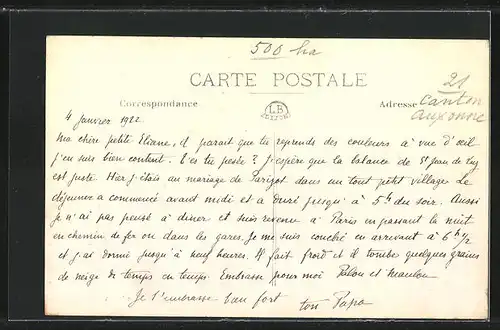 500 ha
CARTE POSTALE
21
Correspondance
LB
Adresse
Canton
Auxonne
4 Janvier 1922
Ma chère petite Eliane, il parait que tu reprends des couleurs à vue d'oeil
j'en suis bien content. T'es tu pesée ? J'espère que la balance de St Jean de Luz
est juste Hier j'étais au mariage de Parizot dans un tout petit village Le
déjeuner a commencé avant midi et a duré jusqu'à 5h du soir. Aussi
je n'ai pas pensé à diner et suis revenu à Paris en passant la nuit
en chemin de fer ou dans les gares. Je me suis couché en arrivant à 6h 1/2
et j'ai dormi jusqu'à neuf heures. Il fait froid et il tombe quelques grains
de neige de temps en temps. Embrasse pour moi et
Je t'embrasse bien fort
ton Papa